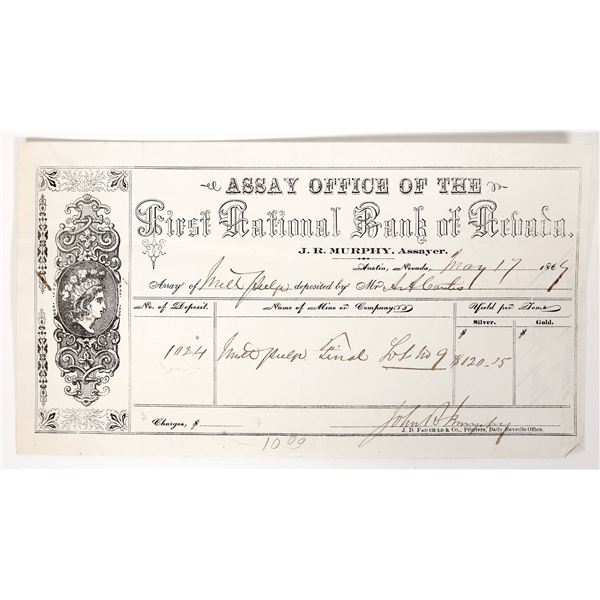 ASSAY OFFICE OF THE
First National Bank of Nevada.
J. R. MURPHY, Assayer.
Austin, Nevada, May 17 1867
Assay of Mill pulp deposited by Mr A A Curtis
No. of Deposit. Name of Mine or Company. Yield per Ton.
Silver. Gold.
1024 Mill pulp Final Lot No 9 $120.15
Charges, $ John R Murphy
J. D. FAIRCHILD & Co., Printers, Daily Reveille Office.
10 00